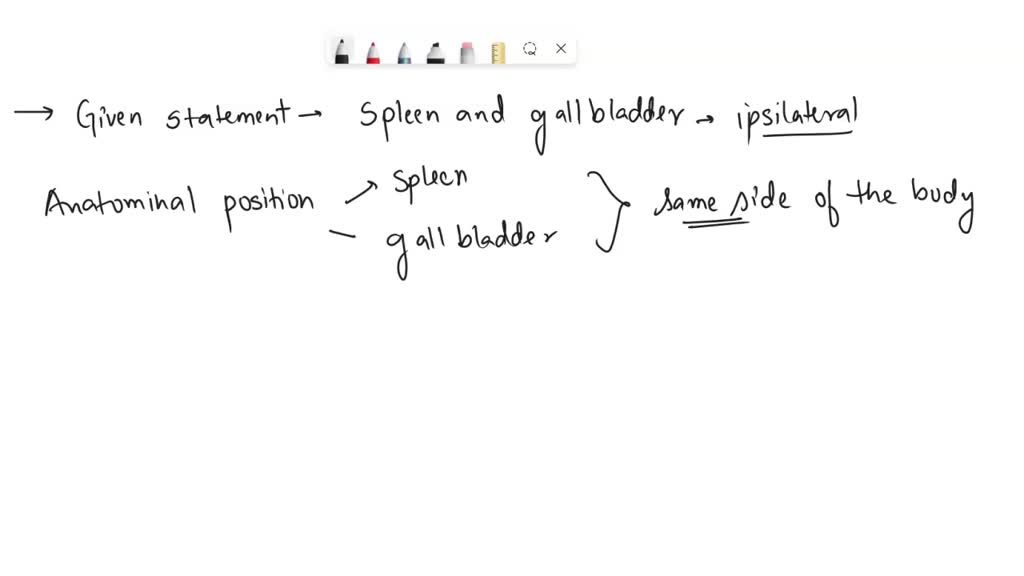 → Given statement → Spleen and gallbladder → ipsilateral
Anatominal position → spleen
– gallbladder } same side of the body